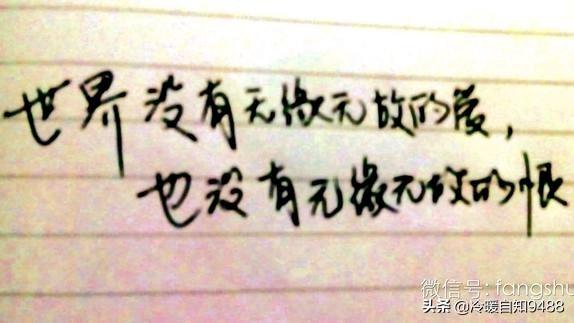 世界没有无缘无故的爱,
也没有无缘无故的恨
微信号: fangshu
头条 @冷暖自知9488